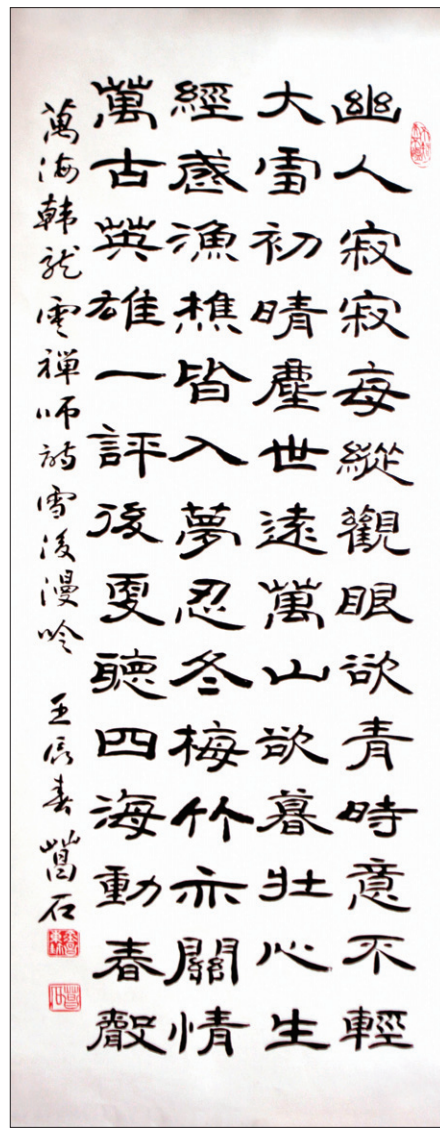 幽人寂寂每縱觀眼欲青時意不輕
大雪初晴塵世遠萬山欲暮壯心生
經歲漁樵皆入夢忍冬梅竹亦關情
萬古英雄一評後更聽四海動春聲
萬海韓龍雲禪師詩雪後漫吟 壬辰春 石